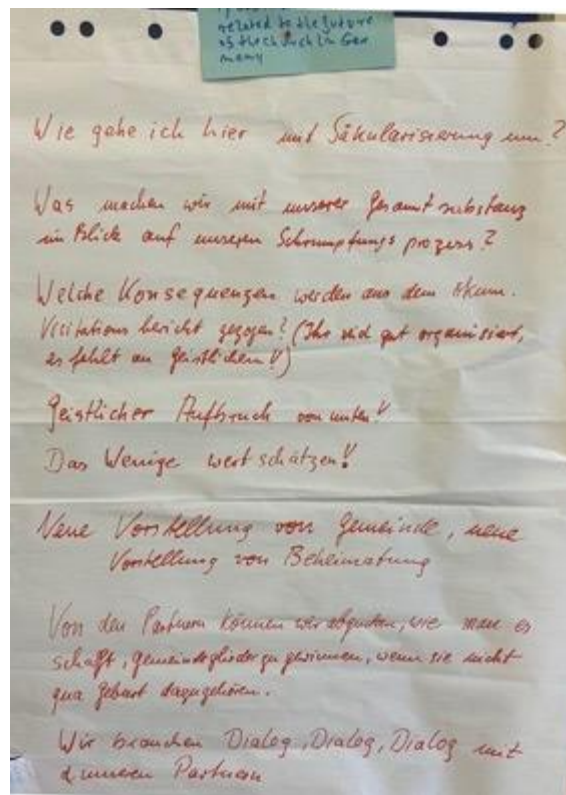 related to the future
of the church in Ger
many
Wie gehe ich hier mit Säkularisierung um?
Was machen wir mit unserer Gesamtsubstanz
im Blick auf unseren Schrumpfungsprozess?
Welche Konsequenzen werden aus dem ökum.
Visitationsbericht gezogen? (Ihr seid gut organisiert,
es fehlt an Geistlichem!)
Geistlicher Aufbruch von unten!
Das Wenige wertschätzen!
Neue Vorstellung von Gemeinde, neue
Vorstellung von Beheimatung
Von den Partnern können wir abgucken, wie man es
schafft, Gemeindeglieder zu gewinnen, wenn sie nicht
qua Geburt dazugehören.
Wir brauchen Dialog, Dialog, Dialog mit
unseren Partnern